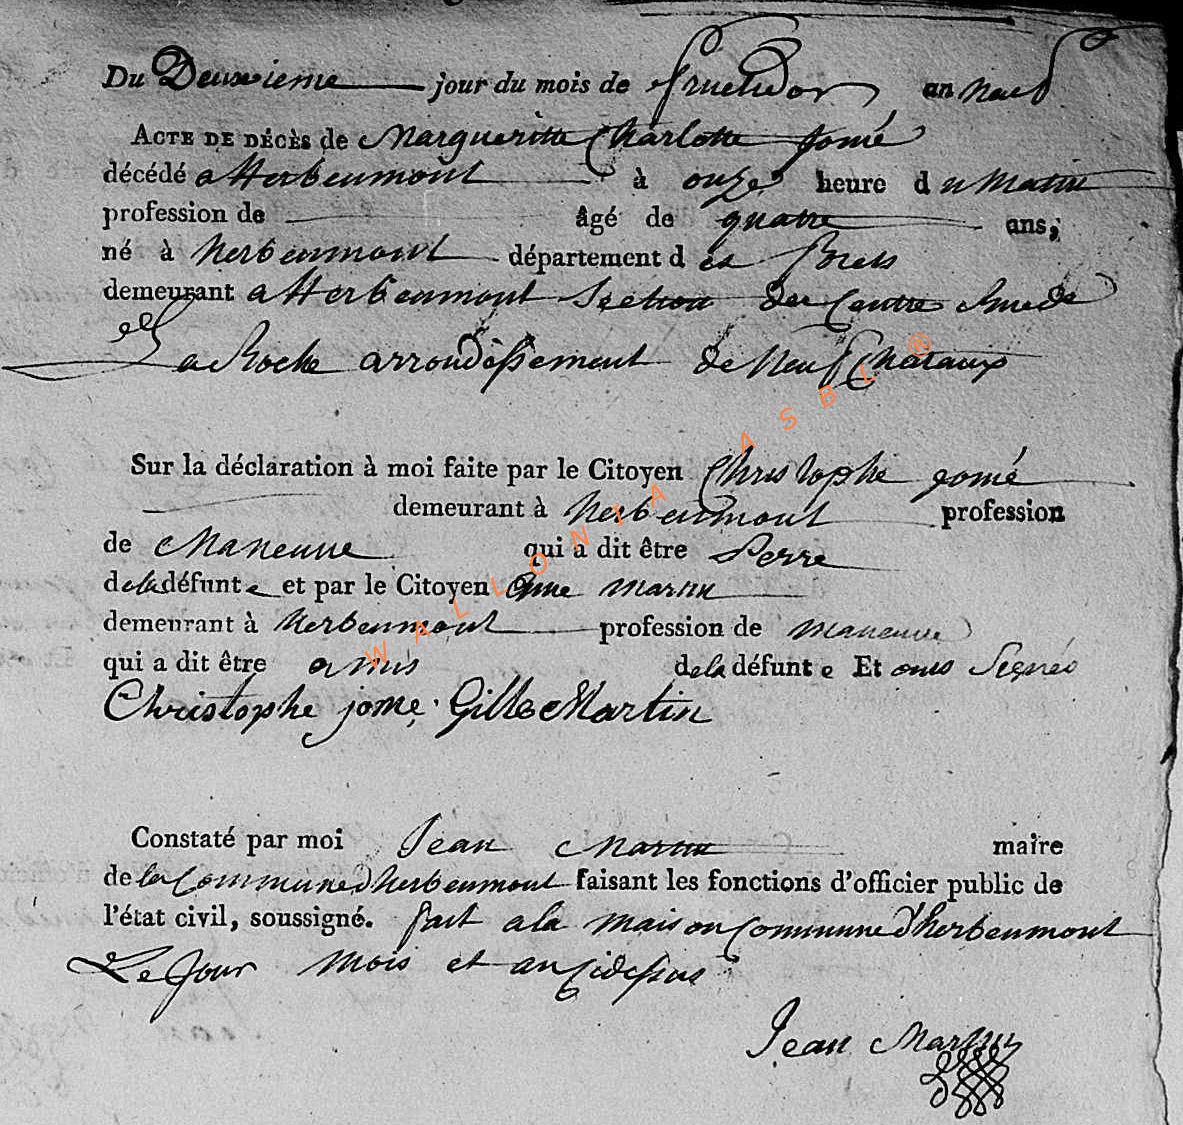 Du Deuxieme jour du mois de fructidor an neuf
ACTE DE DÉCÈS de Margueritte Charlotte Jomé
décédé a Herbeumont à onze heure du Matin
profession de âgé de quatre ans;
né à herbeumont département des forets
demeurant a Herbeumont Section du Centre Rue de
La Roche arrondissement de Neufchataux
Sur la déclaration à moi faite par le Citoyen Christophe jomé
demeurant à herbeumont profession
de Maneuve qui a dit être Perre
dela défunte et par le Citoyen Martin
demeurant à herbeumont profession de maneuve
qui a dit être amis dela défunte Et ons Signés
Christophe jome. Gille Martin
Constaté par moi Jean Martin maire
de la Commune d'herbeumont faisant les fonctions d'officier public de
l'état civil, soussigné. fait a la maison Commune d'herbeumont
Le Jour Mois et an Cidessus
Jean Martin
WALLONIA ASBL ®